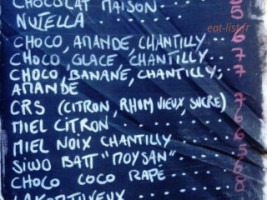 CHOCOLAT MAISON
NUTELLA
CHOCO, AMANDE, CHANTILLY
CHOCO, GLACE, CHANTILLY...
CHOCO, BANANE, CHANTILLY,
AMANDE
CRS (CITRON, RHUM VIEUX, SUCRE)
MIEL CITRON
MIEL NOIX CHANTILLY
SIWO BATT "MOYSAN"
CHOCO COCO RAPE
eat-list.fr